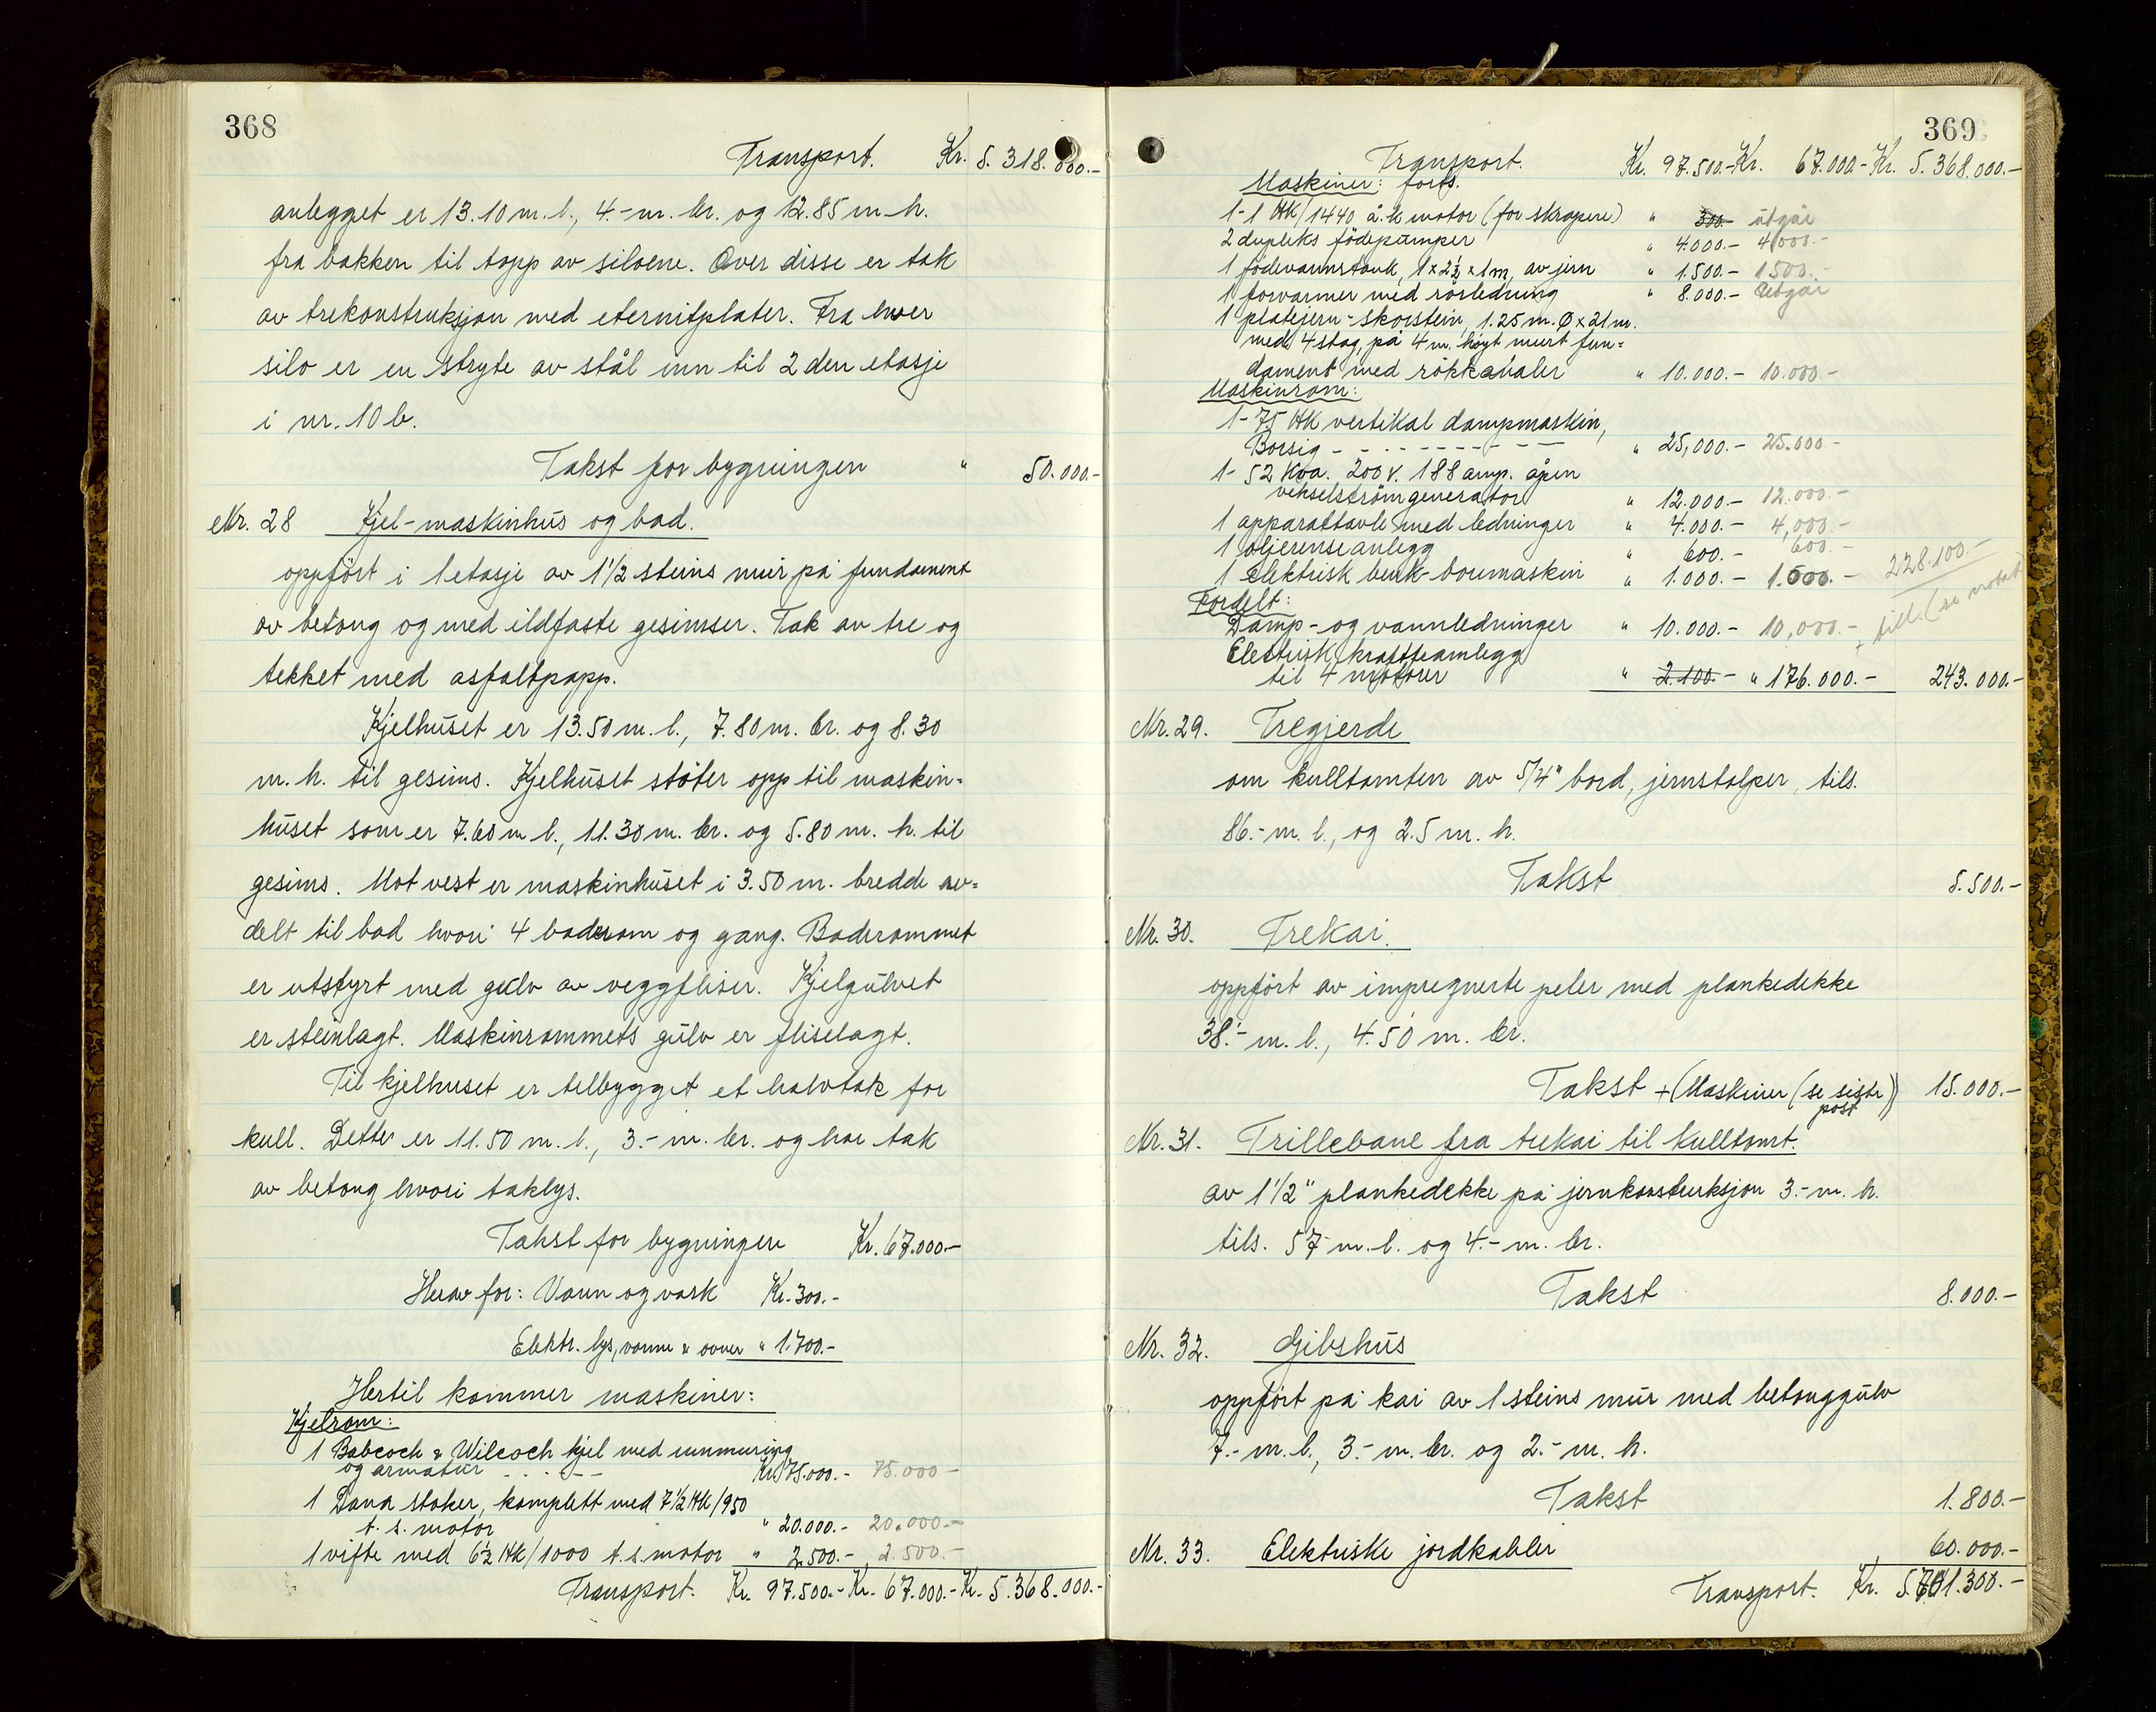 368
Transport. Kr. 5.318.000.-
anlegget er 13.10 m.l., 4.- m. br. og 12.85 m. h.
fra bakken til topp av siloene. Over disse er tak
av trekonstruksjon med eternitplater. Fra hver
silo er en stryte av stål inn til 2den etasje
i nr. 10 b.
Takst for bygningen " 50.000.-
Nr. 28 Kjel-maskinhus og bad.
oppført i 1 etasje av 1 1/2 steins mur på fundament
av betong og med ildfaste gesimser. Tak av tre og
tekket med asfaltpapp.
Kjelhuset er 13.50 m. l., 7.80 m. br. og 8.30
m. h. til gesims. Kjelhuset støter opp til maskin=
huset som er 7.60 m l., 11.30 m. br. og 5.80 m. h. til
gesims. Mot vest er maskinhuset i 3.50 m. bredde av=
delt til bad hvori 4 baderom og gang. Baderommet
er utstyrt med gulv av veggfliser. Kjelgulvet
er steinlagt. Maskinrommets gulv er fliselagt.
Til kjelhuset er tilbygget et halvtak for
kull. Dette er 11.50 m. l., 3.- m. br. og har tak
av betong hvori taklys.
Takst for bygningen Kr. 67.000.-
Herav for: Vann og vask Kr. 300.-
Elektr. lys, varme & ovner " 1.700.-
Hertil kommer maskiner:
Kjelrom:
1 Babcock & Wilcoch kjel med innmuring
og armatur - - - - - Kr. 75.000.- 75.000-
1 Dana stoker, komplett med 7 1/2 HK/950
t. s. motor " 20.000.- 20.000.-
1 vifte med 6 1/2 HK/1000 t.s. motor " 2.500.- 2.500.-
Transport. Kr. 97.500.- Kr. 67.000.- Kr. 5.368.000.-
369
Transport. Kr. 97.500.- Kr. 67.000.- Kr. 5.368.000.-
Maskiner: forts.
1-1 HK/1440 å.k motor (for skrapere) " 300.- utgår
2 dupleks fødepumper " 4.000.- 4.000.-
1 fødevannstank, 1 x 2 1/2 x 1 m, av jern " 1.500.- 1500.-
1 forvarmer med rørledning " 8.000.- utgår
1 platejern-skorstein, 1.25 m. Ø x 21 m.
med 4 stag, på 4 m. høyt murt fun=
dament med røkkanaler " 10.000.- 10.000.-
Maskinrom:
1- 75 HK vertikal dampmaskin,
Borsig - - - - - - - - " 25,000.- 25.000.-
1- 52 Kva. 200 v. 188 amp. åpen
vekselstrømgenerator " 12.000.- 12.000.-
1 apparattavle med ledninger " 4.000.- 4,000.-
1 oljerenseanlegg " 600.- 600.-
1 elektrisk benk-boremaskin " 1.000.- 1.500.- 228.100.-
Fordelt:
Damp- og vannledninger " 10.000.- 10,000.- + till. (se notat)
Elektrisk kraftteanlegg
til 4 motorer " 2.100.- " 176.000.- 243.000.-
Nr. 29. Tregjerde
om kulltomten av 5/4" bord, jernstolper, tils.
86.- m. l., og 2.5 m. h.
Takst 5.500.-
Nr. 30. Trekai.
oppført av impregnerte peler med plankedekke
38.- m. l., 4.50 m. br.
Takst + (Maskiner (se siste post)) 15.000.-
Nr. 31. Trillebane fra trekai til kulltomt.
av 1 1/2" plankedekke på jernkonstruksjon 3.- m. h.
tils. 57 m. l. og 4.- m. br.
Takst 8.000.-
Nr. 32. Gibshus
oppført på kai av 1 steins mur med betonggulv
7.- m. l., 3.- m. br. og 2.- m. h.
Takst 1.800.-
Nr. 33. Elektriske jordkabler 60.000.-
Transport. Kr. 5.701.300.-